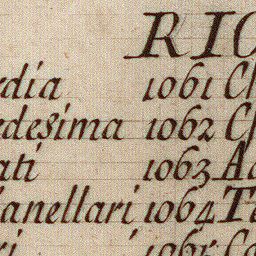 RIO
rdia 1061 C
rdesima 1062 C
ati 1063 A
anellari 1064 Te
ri 1065 Co